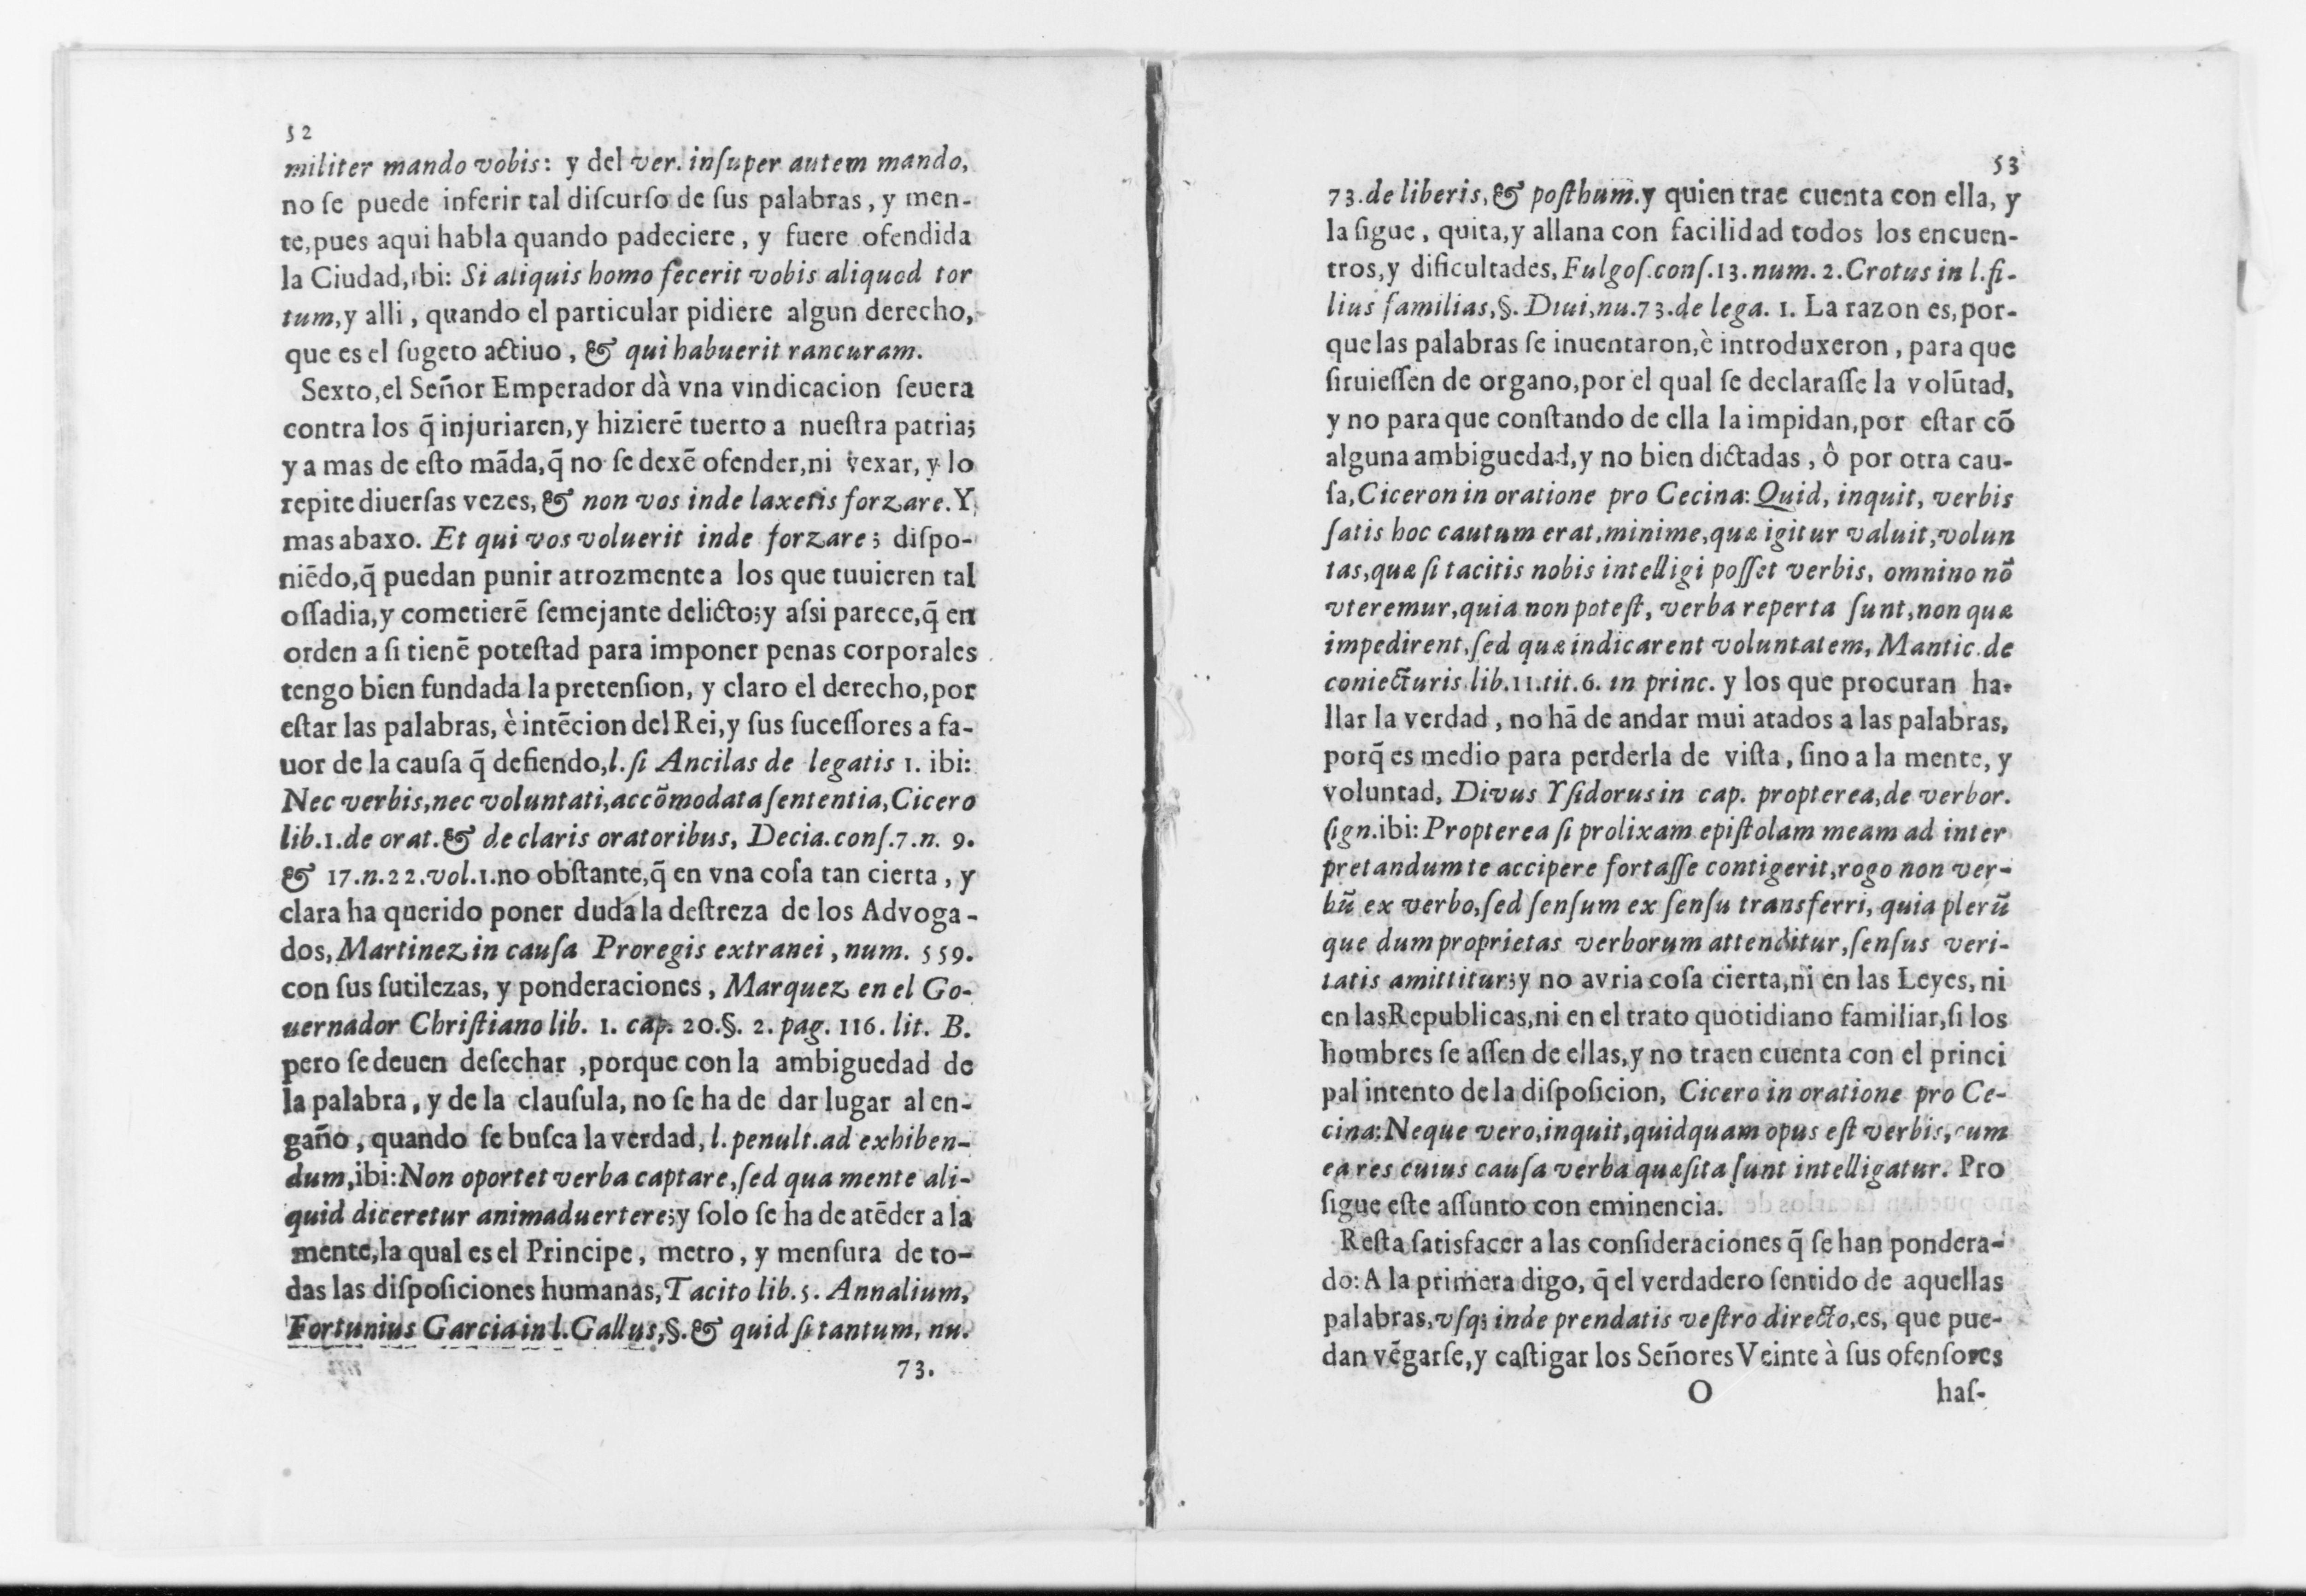 52
militer mando vobis: y del ver. inſuper autem mando,
no ſe puede inferir tal diſcurſo de ſus palabras, y men-
te, pues aqui habla quando padeciere, y fuere ofendida
la Ciudad, ibi: Si aliquis homo fecerit vobis aliquod tor
tum, y alli, quando el particular pidiere algun derecho,
que es el ſugeto actiuo, & qui habuerit rancuram.
Sexto, el Señor Emperador dà vna vindicacion ſeuera
contra los q̃ injuriaren, y hizierẽ tuerto a nueſtra patria;
y a mas de eſto mãda, q̃ no ſe dexẽ ofender, ni vexar, y lo
repite diuerſas vezes, & non vos inde laxetis forzare. Y
mas abaxo. Et qui vos voluerit inde forzare; diſpo-
niẽdo, q̃ puedan punir atrozmente a los que tuuieren tal
oſſadia, y cometierẽ ſemejante delicto; y aſsi parece, q̃ en
orden a ſi tienẽ poteſtad para imponer penas corporales
tengo bien fundada la pretenſion, y claro el derecho, por
eſtar las palabras, è intẽcion del Rei, y ſus ſuceſſores a fa-
uor de la cauſa q̃ defiendo, l. ſi Ancilas de legatis 1. ibi:
Nec verbis, nec voluntati, accõmodata ſententia, Cicero
lib. 1. de orat. & de claris oratoribus, Decia. conſ. 7. n. 9.
& 17. n. 22. vol. 1. no obſtante, q̃ en vna coſa tan cierta, y
clara ha querido poner duda la deſtreza de los Advoga-
dos, Martinez in cauſa Proregis extranei, num. 559.
con ſus ſutilezas, y ponderaciones, Marquez en el Go-
uernador Chriſtiano lib. 1. cap. 20. §. 2. pag. 116. lit. B.
pero ſe deuen deſechar, porque con la ambiguedad de
la palabra, y de la clauſula, no ſe ha de dar lugar al en-
gaño, quando ſe buſca la verdad, l. penult. ad exhiben-
dum, ibi: Non oportet verba captare, ſed qua mente ali-
quid diceretur animaduertere; y ſolo ſe ha de atẽder a la
mente, la qual es el Principe, metro, y menſura de to-
das las diſpoſiciones humanas, Tacito lib. 5. Annalium,
Fortunius Garcia in l. Gallus, §. & quid ſi tantum, nu.
73.
53
73. de liberis, & poſthum. y quien trae cuenta con ella, y
la ſigue, quita, y allana con facilidad todos los encuen-
tros, y dificultades, Fulgoſ. conſ. 13. num. 2. Crotus in l. fi-
lius familias, §. Diui, nu. 73. de lega. 1. La razon es, por-
que las palabras ſe inuentaron, è introduxeron, para que
ſiruieſſen de organo, por el qual ſe declaraſſe la volũtad,
y no para que conſtando de ella la impidan, por eſtar cõ
alguna ambiguedad, y no bien dictadas, ô por otra cau-
ſa, Ciceron in oratione pro Cecina: Quid, inquit, verbis
ſatis hoc cautum erat, minime, quæ igitur valuit, volun
tas, quæ ſi tacitis nobis intelligi poſſet verbis, omnino nõ
vteremur, quia non poteſt, verba reperta ſunt, non quæ
impedirent, ſed quæ indicarent voluntatem, Mantic. de
coniecturis lib. 11. tit. 6. in princ. y los que procuran ha-
llar la verdad, no hã de andar mui atados a las palabras,
porq̃ es medio para perderla de viſta, ſino a la mente, y
voluntad, Divus Yſidorus in cap. propterea, de verbor.
ſign. ibi: Propterea ſi prolixam epiſtolam meam ad inter
pretandum te accipere fortaſſe contigerit, rogo non ver-
bũ ex verbo, ſed ſenſum ex ſenſu transferri, quia plerũ
que dum proprietas verborum attenditur, ſenſus veri-
tatis amittitur; y no avria coſa cierta, ni en las Leyes, ni
en las Republicas, ni en el trato quotidiano familiar, ſi los
hombres ſe aſſen de ellas, y no traen cuenta con el princi
pal intento de la diſpoſicion, Cicero in oratione pro Ce-
cina: Neque vero, inquit, quidquam opus eſt verbis, cum
ea res cuius cauſa verba quæſita ſunt intelligatur. Pro
ſigue eſte aſſunto con eminencia.
Reſta ſatisfacer a las conſideraciones q̃ ſe han pondera-
do: A la primera digo, q̃ el verdadero ſentido de aquellas
palabras, vſq; inde prendatis veſtro directo, es, que pue-
dan vẽgarſe, y caſtigar los Señores Veinte à ſus ofenſores
O
haſ-